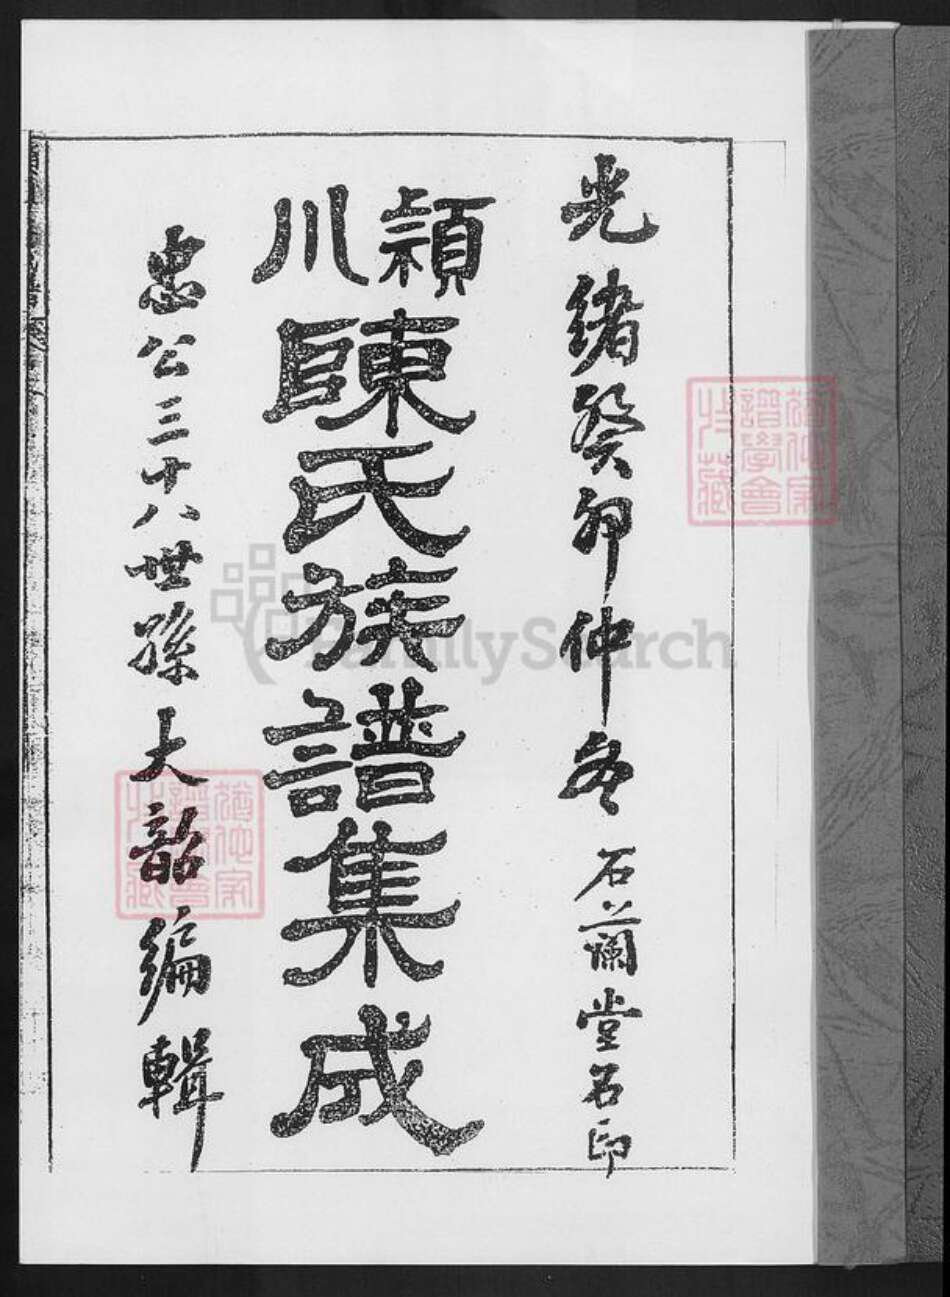 光緒癸卯仲冬 石蘭堂石印
潁川陳氏族譜集成
忠公三十八世孫大韶編輯
譜學會
收藏
譜學會
收藏
FamilySearch